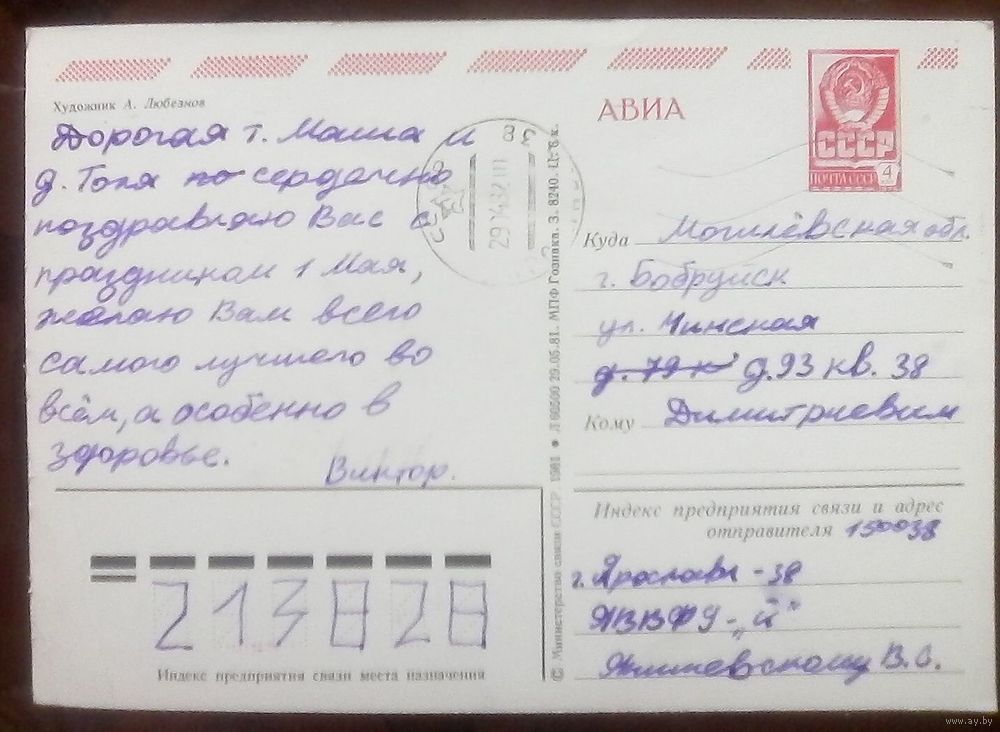 Художник А. Любезнов
Дорогая т. Маша и
д. Толя по сердечно
поздравляю Вас с
праздником 1 Мая,
желаю Вам всего
самого лучшего во
всём, а особенно в
здоровье.
Виктор.
213828
Индекс предприятия связи места назначения
© Министерство связи СССР 1981 ● Л 80500 29.05.81. МПФ Гознака. З. 8240. Ц. 6 к.
АВИА
СССР
ПОЧТА СССР 4
Куда Могилёвская обл.
г. Бобруйск
ул. Минская
д. 79 к д. 93 кв. 38
Кому Димитриевим
Индекс предприятия связи и адрес
отправителя 150038
г. Ярославль-38
ЯВВФУ-„й"
В. С.
www.ay.by